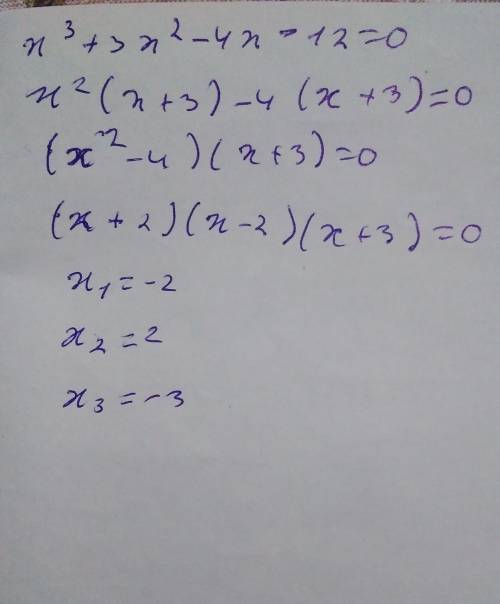 x³+3x²-4x-12=0
x²(x+3)-4(x+3)=0
(x²-4)(x+3)=0
(x+2)(x-2)(x+3)=0
x₁=-2
x₂=2
x₃=-3